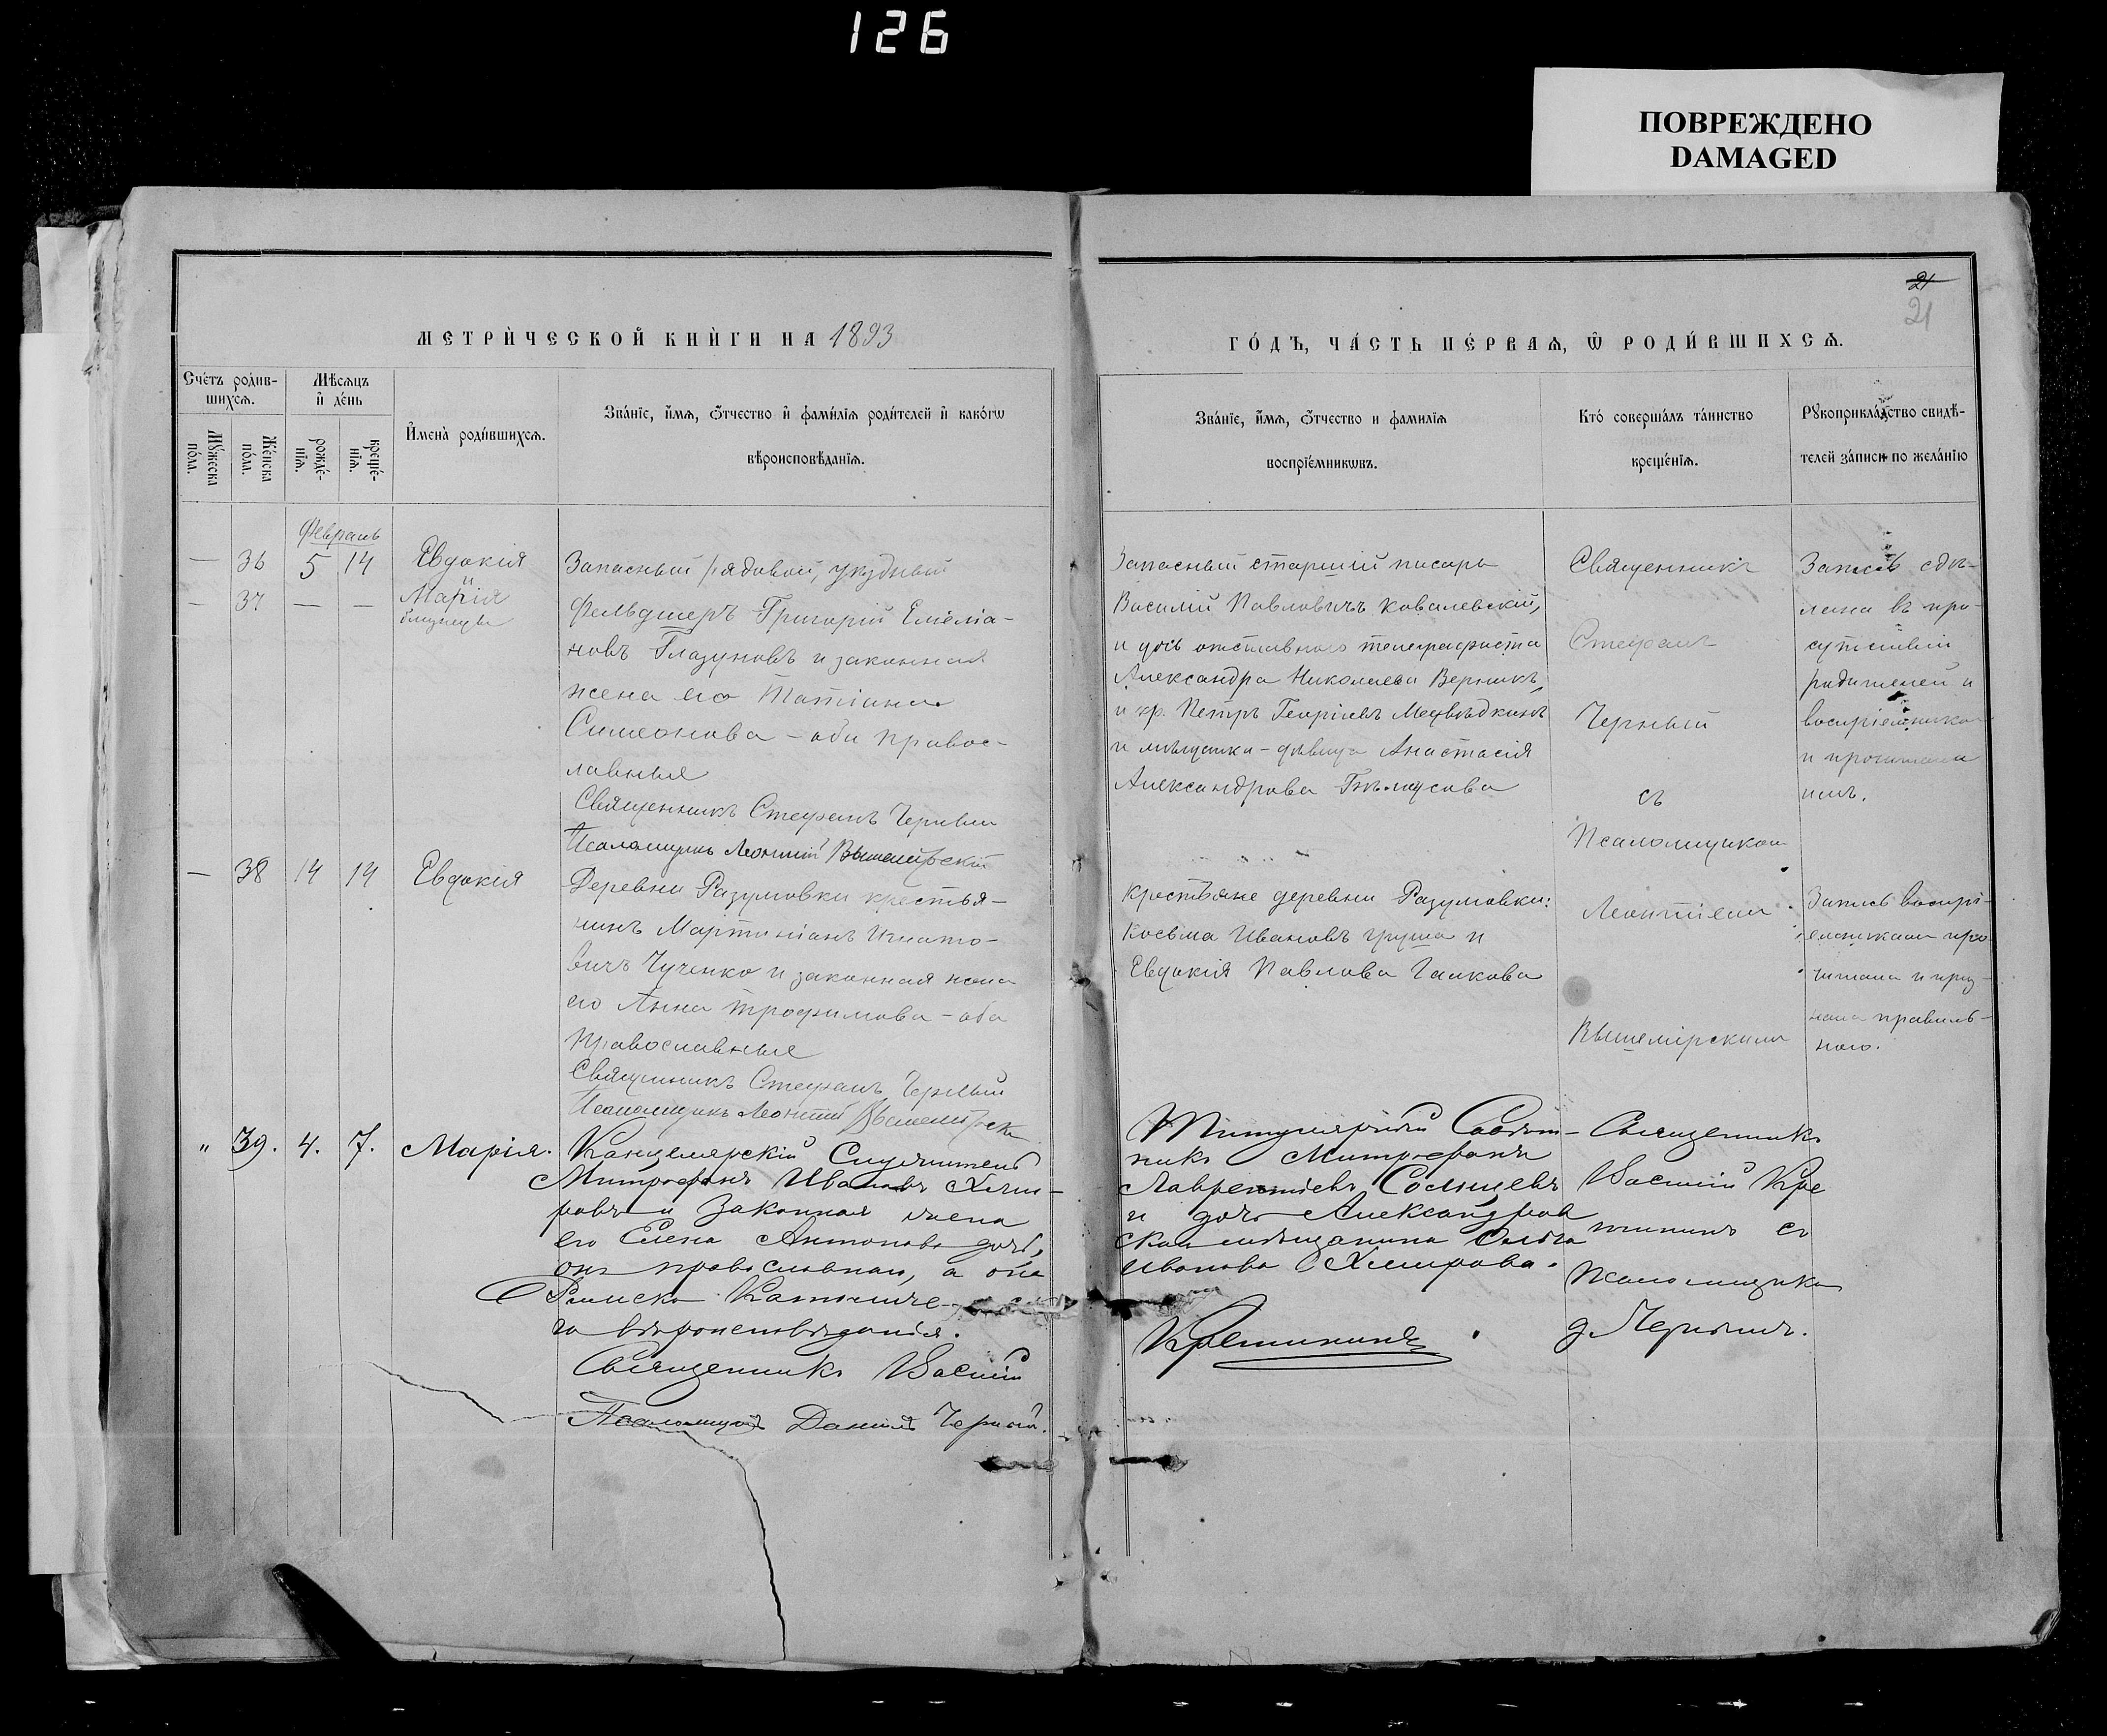 126
ПОВРЕЖДЕНО
DAMAGED
21
21
МЕТРИ́ЧЕСКОЙ КНИ́ГИ НА 1893
ГО́ДЪ, ЧА́СТЬ ПЕ́РВАѦ, Ѡ РОДИ́ВШИХСѦ.
Сче́тъ родив-
шихсѧ.
Мꙋ́жеска
по́ла.
Же́нска
по́ла.
Мѣ́сѧцъ
и҆ де́нь
рожде́-
нїѧ.
креще́-
нїѧ.
И҆мена̀ роди́вшихсѧ.
Зва́нїе, и҆́мѧ, ѻ҆́тчество и҆ фами́лїѧ роди́телей и҆ како́гѡ
вѣроисповѣ́данїѧ.
Зва́нїе, и҆́мѧ, ѻ҆́тчество и фамилїѧ
воспрїе́мникѡвъ.
Кто́ соверша́лъ та́инство
креще́нїѧ.
Рꙋкоприкла́дство свидѣ́-
телей за́писи по жела́нїю
Февраль
— 36 5 14 Евдокія
и
— 37 — — Марія
близнецы
Запасный рядовой, уѣздный
Фельдшеръ Григорій Емеліа-
новъ Глазуновъ и законная
жена его Татіана
Симеонова – оба православ-
лавные
Священникъ Стефанъ Черный
Псаломщикъ Леонтій Вышемірскій
Запасный старшій писарь
Василій Павловичъ Ковалевскій,
и дочь отставного телеграфиста
Александра Николаева Верникъ,
и кр. Петръ Георгіевъ Медвѣдкинъ
и мѣщанка – дѣвица Анастасія
Александрова Бѣлоусова
Священникъ
Стефанъ
Черный
съ
Псаломщикомъ
Леонтіемъ
Вышемірскимъ
Запись сдѣ-
лана въ при-
сутствіи
родителей и
воспріемниковъ
и прочитана
имъ.
— 38 14 14 Евдокія
Деревни Разумовки крестья-
нинъ Мартиніанъ Игнато-
вичъ Чученко и законная жена
его Анна Трофимова – оба
православные
Священникъ Стефанъ Черный
Псаломщикъ Леонтій Вышемірскій
Крестьяне деревни Разумовки:
Косьма Ивановъ Груша и
Евдокія Павлова Галкова
Запись воспрі-
емникамъ про-
читана и приз-
нана правиль-
ною.
" 39. 4. 7. Марія.
Канцелярскій Служитель
Митрофанъ Ивановъ Хми-
ровъ и законная жена
его Елена Антонова дочь,
онъ православнаго, а она
Римско-Католиче-ска-
го вѣроисповѣданія.
Священникъ Василій
Псаломщикъ Даніилъ Черный.
Титулярный Совѣт-
никъ Митрофанъ
Лаврентіевъ Солнцевъ
и дочь Александров
скаго мѣщанина Ольга
Иванова Хмирова.
Кретининъ
Священникъ
Василій Кре
тининъ съ
Псаломщикомъ
Д. Чернымъ.